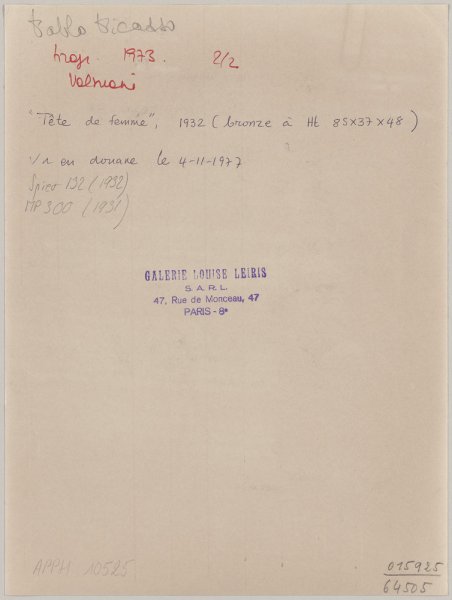 Pablo Picasso
1973. 2/2
Valsuani
"Tête de femme", 1932 (bronze à Ht 85x37x48)
Vu en douane le 4-11-1977
Spies 132 (1932)
MP 300 (1931)
GALERIE LOUISE LEIRIS
S. A. R. L.
47, Rue de Monceau, 47
PARIS - 8e
APPH 10525
015925
64505